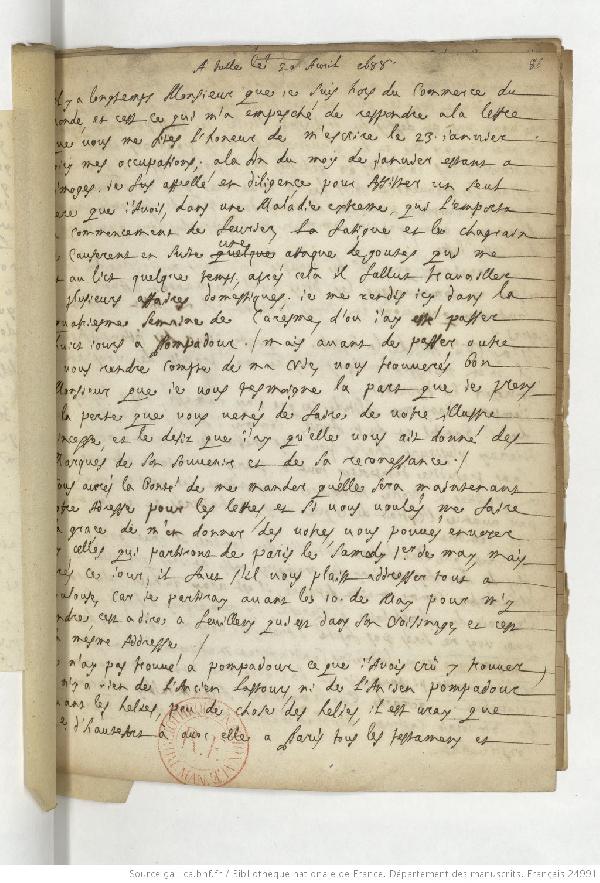 A tulle le 20 Avril 1688
86
il y a longtemps Monsieur que ie suis hors du Commerce du
onde, et cest ce qui m'a empesché de respondre a la lettre
ue vous me fites l'honeur de m'escrire le 23. ianvier
mes occupations. a la fin du moys de ianvier estant a
imoges. ie fus apellé en diligence pour Assister un seul
ere que i'avois, dans une Maladie extreme, qui l'emporta
commencement de feurier, La fatigue et le chagrain
Causerent en suite une quelque attaque de goutes qui me
au lict quelque temps, apres cela il fallut travailler
plusieurs affaires domestiques. ie me rendis icy dans la
quatriesme Semaine de Caresme, d'ou i'ay esté passer
iours a pompadour ./ mais avant de passer outre
vous rendre compte de ma vous trouverés bon
Monsieur que ie vous tesmoigne la part que ie prens
la perte que vous venés de faire de votre illustre
incesse, et le desir que i'ay qu'elle vous ait donné des
Marques de son souvenir et de sa reconessance ./
ous aurés la bonté de me mander quelle sera maintenant
otre adresse pour les lettes et si vous voulés me faire
a grace de m'en donner des votres, vous pouvés envoyer
celles qui partirons de paris le Samedy 1er de may, mais
res ce iour, il faut s'il vous plaist addresser tout a
car ie partiray avant les 10. de May pour m'y
endre, cest a dire a qui est dans son voisinage, et cest
a mesme Addresse /
e n'ay pas trouvé a pompadour ce que i'avois crû y trouver
n'y a rien de l'Ancien Lastours ni de l'Ancien pompadour
avant les helies, peu de chose des helies, il est vray que
d'hautefort a avec elle a paris tous les testamens et
Source gallica.bnf.fr / Bibliothèque nationale de France. Département des manuscrits. Français 24991